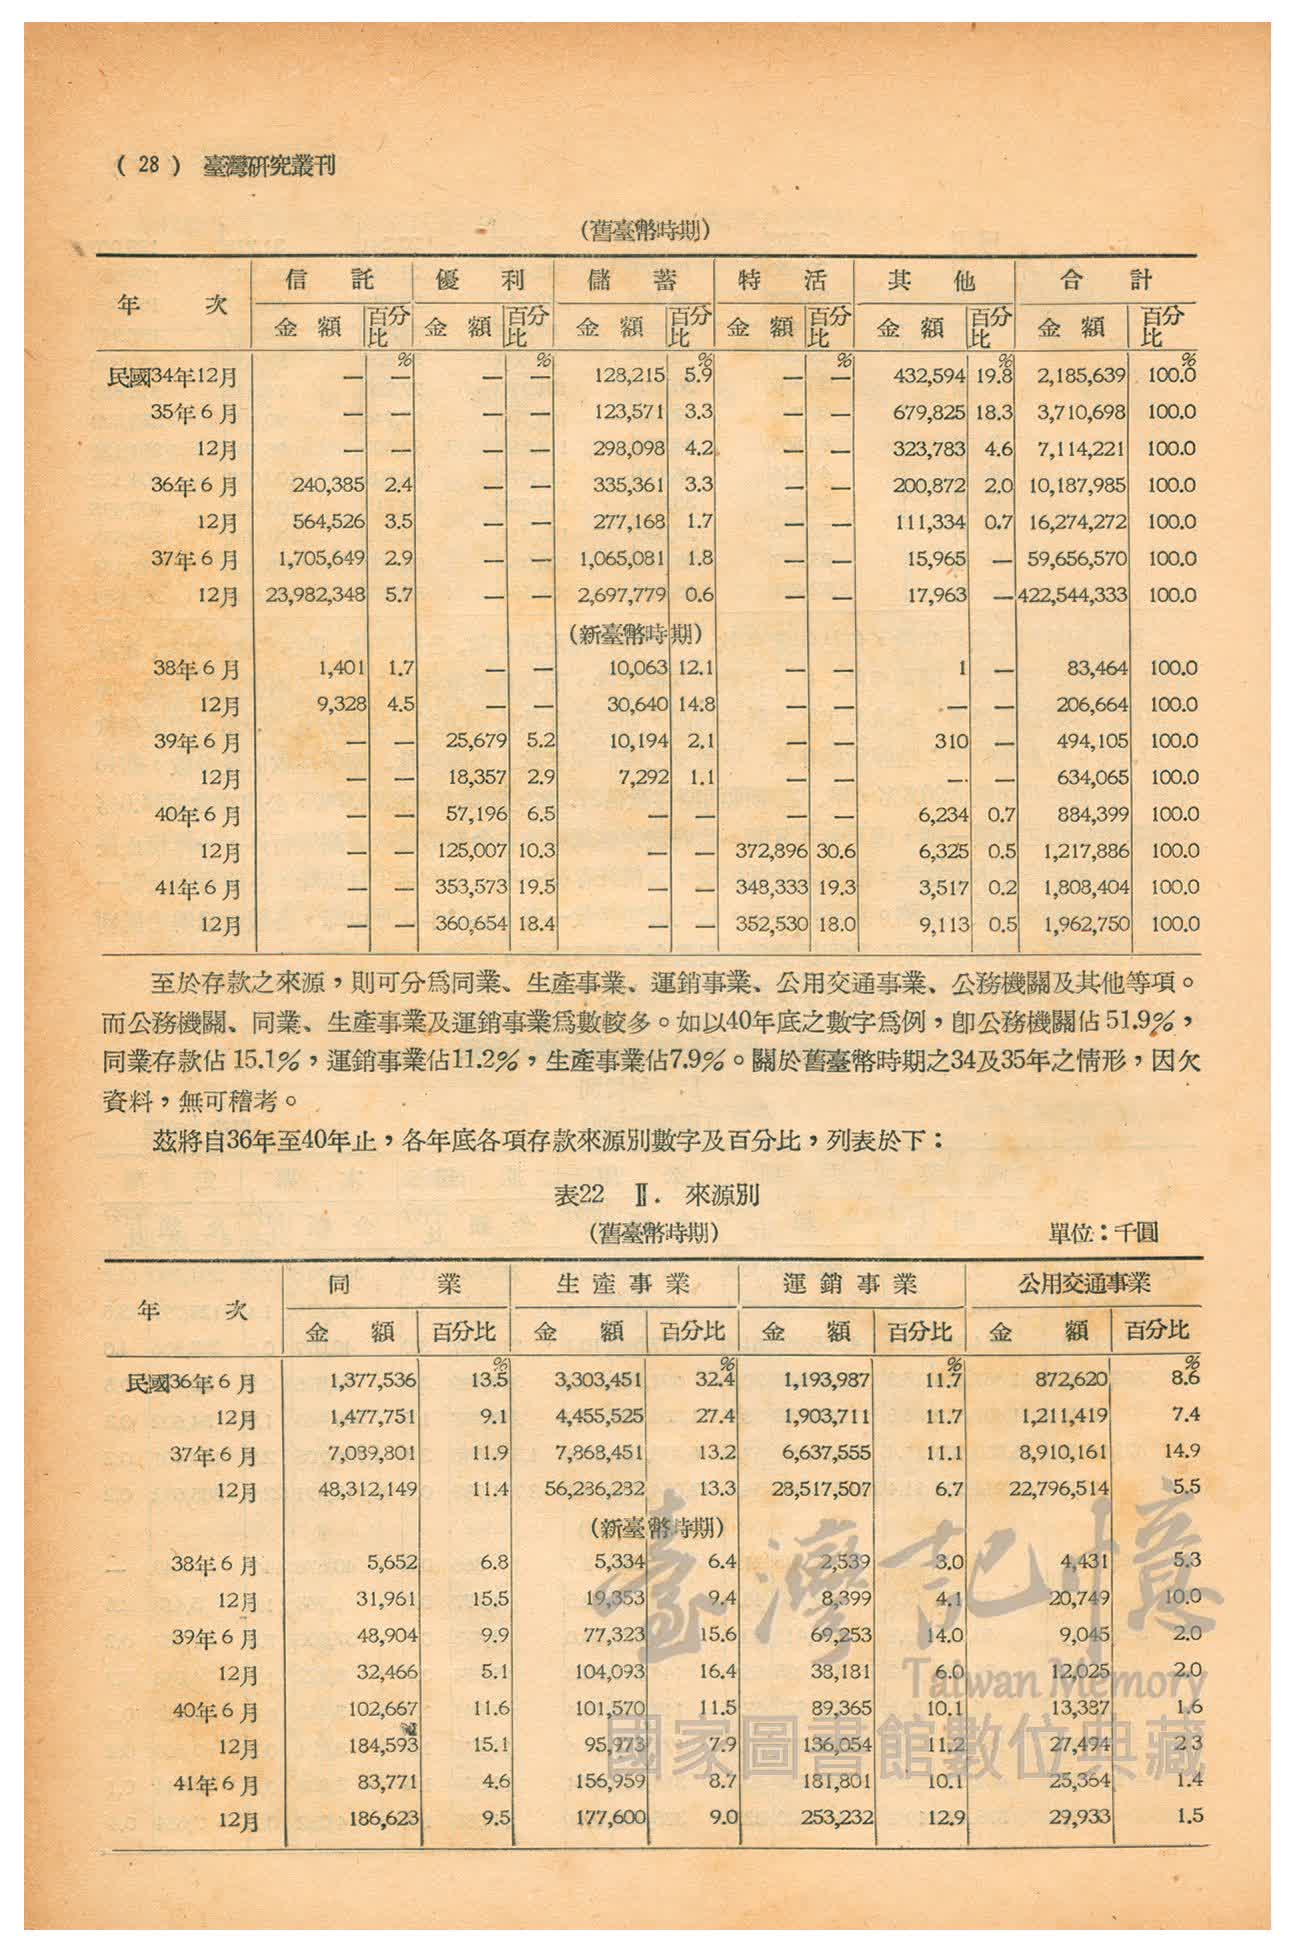 ( 28 ) 臺灣研究叢刊
(舊臺幣時期)
年 次 信 託 優 利 儲 蓄 特 活 其 他 合 計
金 額 百分比 金 額 百分比 金 額 百分比 金 額 百分比 金 額 百分比 金 額 百分比
% % % % % %
民國34年12月 — — — — 128,215 5.9 — — 432,594 19.8 2,185,639 100.0
35年6月 — — — — 123,571 3.3 — — 679,825 18.3 3,710,698 100.0
12月 — — — — 298,098 4.2 — — 323,783 4.6 7,114,221 100.0
36年6月 240,385 2.4 — — 335,361 3.3 — — 200,872 2.0 10,187,985 100.0
12月 564,526 3.5 — — 277,168 1.7 — — 111,334 0.7 16,274,272 100.0
37年6月 1,705,649 2.9 — — 1,065,081 1.8 — — 15,965 — 59,656,570 100.0
12月 23,982,348 5.7 — — 2,697,779 0.6 — — 17,963 — 422,544,333 100.0
(新臺幣時期)
38年6月 1,401 1.7 — — 10,063 12.1 — — 1 — 83,464 100.0
12月 9,328 4.5 — — 30,640 14.8 — — — — 206,664 100.0
39年6月 — — 25,679 5.2 10,194 2.1 — — 310 — 494,105 100.0
12月 — — 18,357 2.9 7,292 1.1 — — — — 634,065 100.0
40年6月 — — 57,196 6.5 — — — — 6,234 0.7 884,399 100.0
12月 — — 125,007 10.3 — — 372,896 30.6 6,325 0.5 1,217,886 100.0
41年6月 — — 353,573 19.5 — — 348,333 19.3 3,517 0.2 1,808,404 100.0
12月 — — 360,654 18.4 — — 352,530 18.0 9,113 0.5 1,962,750 100.0
至於存款之來源，則可分爲同業、生產事業、運銷事業、公用交通事業、公務機關及其他等項。
而公務機關、同業、生產事業及運銷事業爲數較多。如以40年底之數字爲例，卽公務機關佔51.9%，
同業存款佔15.1%，運銷事業佔11.2%，生產事業佔7.9%。關於舊臺幣時期之34及35年之情形，因欠
資料，無可稽考。
茲將自36年至40年止，各年底各項存款來源別數字及百分比，列表於下：
表22 Ⅱ. 來源別
(舊臺幣時期) 單位：千圓
年 次 同 業 生產事業 運銷事業 公用交通事業
金 額 百分比 金 額 百分比 金 額 百分比 金 額 百分比
% % % %
民國36年6月 1,377,536 13.5 3,303,451 32.4 1,193,987 11.7 872,620 8.6
12月 1,477,751 9.1 4,455,525 27.4 1,903,711 11.7 1,211,419 7.4
37年6月 7,089,801 11.9 7,868,451 13.2 6,637,555 11.1 8,910,161 14.9
12月 48,312,149 11.4 56,236,232 13.3 28,517,507 6.7 22,796,514 5.5
(新臺幣時期)
38年6月 5,652 6.8 5,334 6.4 2,539 3.0 4,431 5.3
12月 31,961 15.5 19,353 9.4 8,399 4.1 20,749 10.0
39年6月 48,904 9.9 77,323 15.6 69,253 14.0 9,045 2.0
12月 32,466 5.1 104,093 16.4 38,181 6.0 12,025 2.0
40年6月 102,667 11.6 101,570 11.5 89,365 10.1 13,387 1.6
12月 184,593 15.1 95,973 7.9 136,054 11.2 27,494 2 3
41年6月 83,771 4.6 156,959 8.7 181,801 10.1 25,364 1.4
12月 186,623 9.5 177,600 9.0 253,232 12.9 29,933 1.5
臺灣記憶
Taiwan Memory
國家圖書館數位典藏